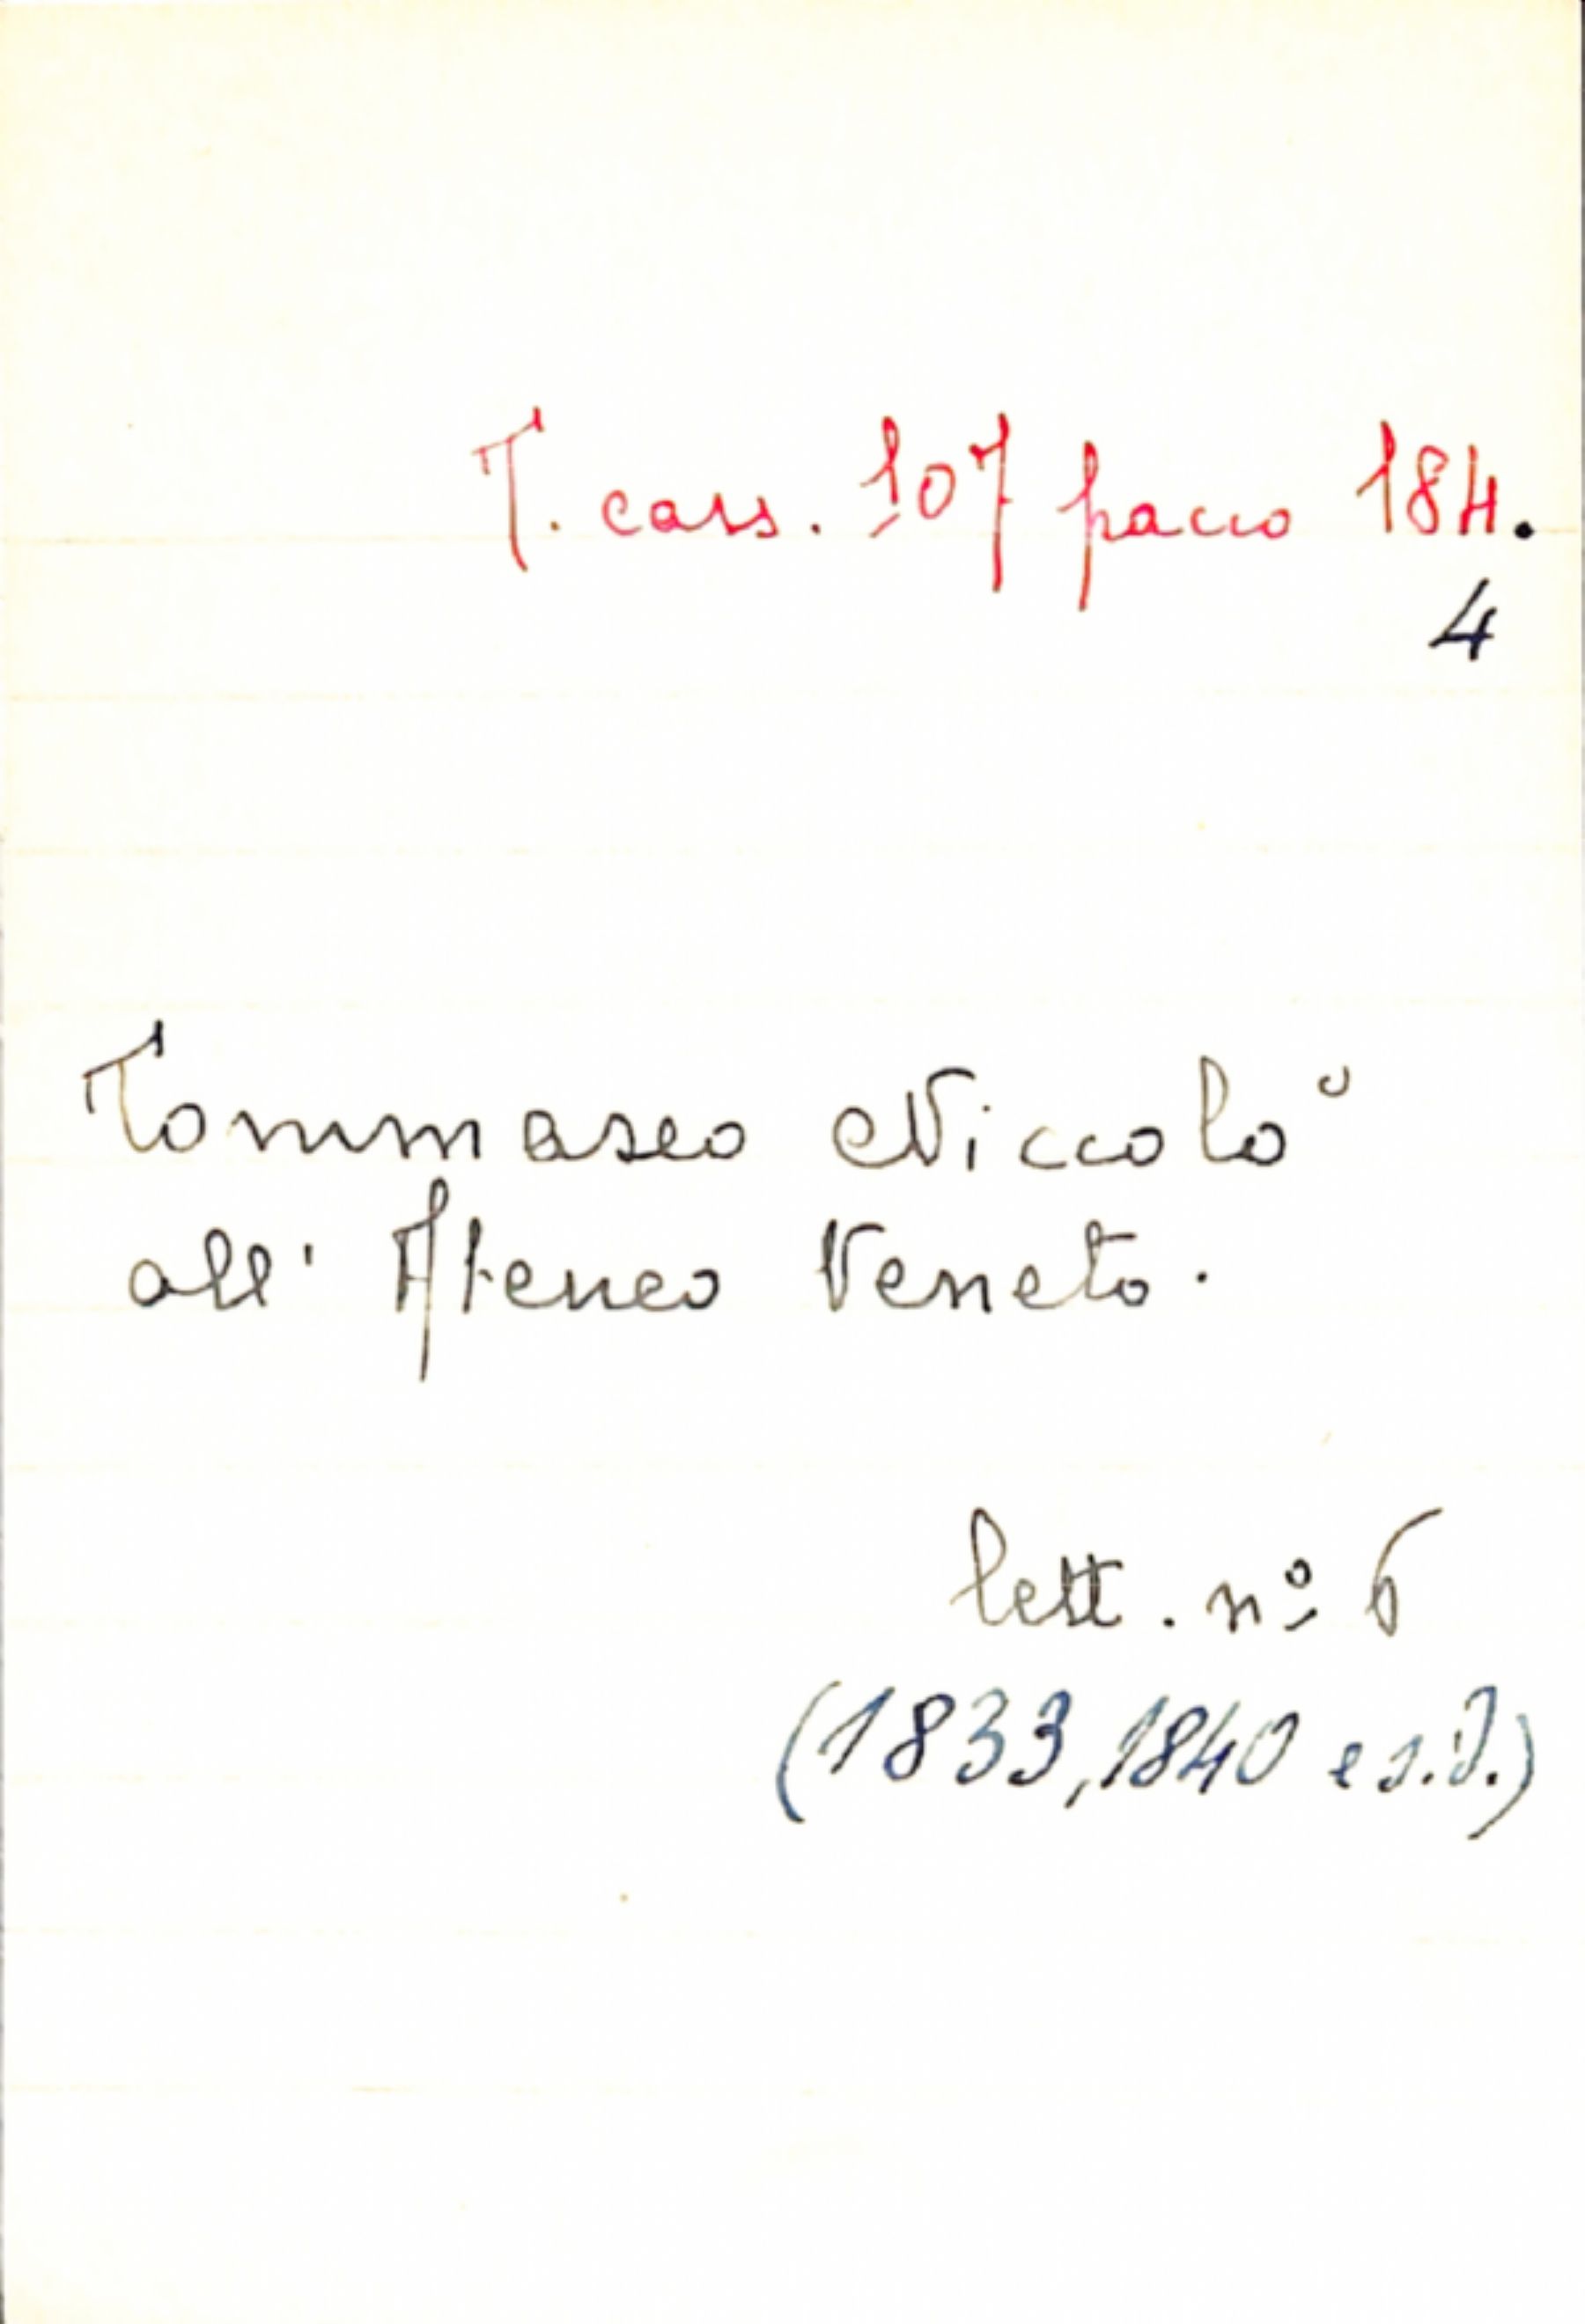 T. cass. 107 pacco 184.
4
Tommaseo Niccolò
all' Ateneo Veneto.
lett. nº 6
(1833, 1840 e s.d.)